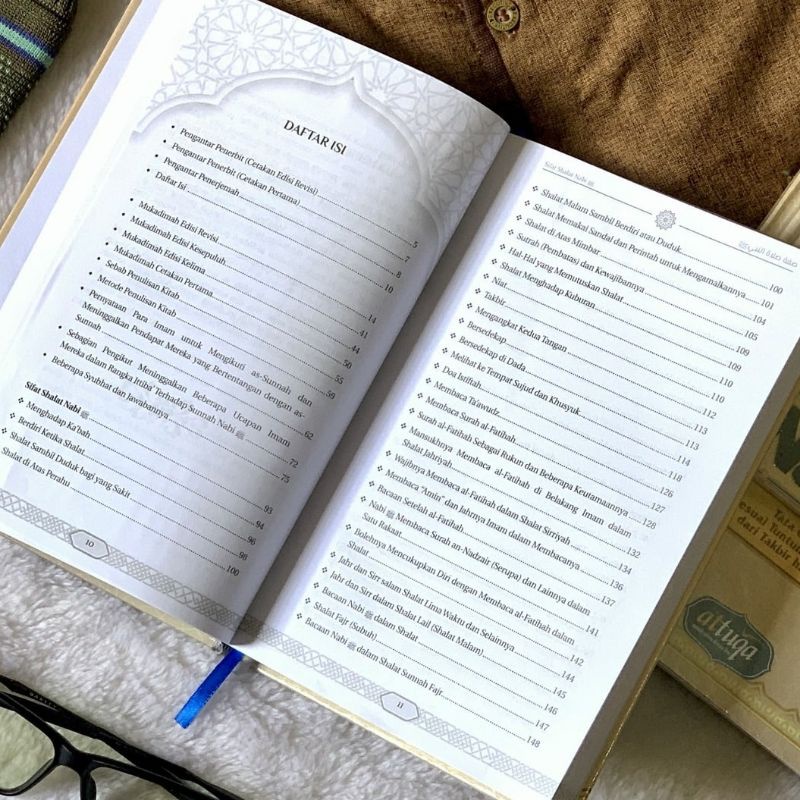 DAFTAR ISI
• Pengantar Penerbit (Cetakan Edisi Revisi) 5
• Pengantar Penerbit (Cetakan Pertama) 7
• Pengantar Penerjemah 8
• Daftar Isi 10
• Mukadimah Edisi Revisi 14
• Mukadimah Edisi Kesepuluh 41
• Mukadimah Edisi Kelima 44
• Mukadimah Cetakan Pertama 50
• Sebab Penulisan Kitab 55
• Metode Penulisan Kitab 59
• Pernyataan Para Imam untuk Mengikuti as-Sunnah dan
Meninggalkan Pendapat Mereka yang Bertentangan dengan as-
Sunnah 62
• Sebagian Pengikut Meninggalkan Beberapa Ucapan Imam
Mereka dalam Rangka Ittiba' Terhadap Sunnah Nabi ﷺ 72
• Beberapa Syubhat dan Jawabannya 75
Sifat Shalat Nabi ﷺ 93
❖ Menghadap Ka'bah 94
❖ Berdiri Ketika Shalat 96
❖ Shalat Sambil Duduk bagi yang Sakit 98
Shalat di Atas Perahu 100
10
Sifat Shalat Nabi ﷺ
صفة صلاة النبي ﷺ
❖ Shalat Malam Sambil Berdiri atau Duduk 100
❖ Shalat Memakai Sandal dan Perintah untuk Mengamalkannya 101
❖ Shalat di Atas Mimbar 104
❖ Sutrah (Pembatas) dan Kewajibannya 105
❖ Hal-Hal yang Memutuskan Shalat 109
❖ Shalat Menghadap Kuburan 109
❖ Niat 110
❖ Takbir 110
❖ Mengangkat Kedua Tangan 112
❖ Bersedekap 113
❖ Bersedekap di Dada 113
❖ Melihat ke Tempat Sujud dan Khusyuk 114
❖ Doa Istiftah 118
❖ Membaca Ta'awudz 126
❖ Membaca Surah al-Fatihah 127
❖ Surah al-Fatihah Sebagai Rukun dan Beberapa Keutamaannya 128
❖ Mansukhnya Membaca al-Fatihah di Belakang Imam dalam
Shalat Jahriyah 132
❖ Wajibnya Membaca al-Fatihah dalam Shalat Sirriyah 134
❖ Membaca "Amin" dan Jahrnya Imam dalam Membacanya 136
❖ Bacaan Setelah al-Fatihah 137
❖ Nabi ﷺ Membaca Surah an-Nadzair (Serupa) dan Lainnya dalam
Satu Rakaat 141
❖ Bolehnya Mencukupkan Diri dengan Membaca al-Fatihah dalam
Shalat 142
❖ Jahr dan Sirr salam Shalat Lima Waktu dan Selainnya 144
❖ Jahr dan Sirr dalam Shalat Lail (Shalat Malam) 145
❖ Bacaan Nabi ﷺ dalam Shalat 146
❖ Shalat Fajr (Subuh) 147
❖ Bacaan Nabi ﷺ dalam Shalat Sunnah Fajr 148
11
Tata
Tuntun
dari Takbir
attuqa